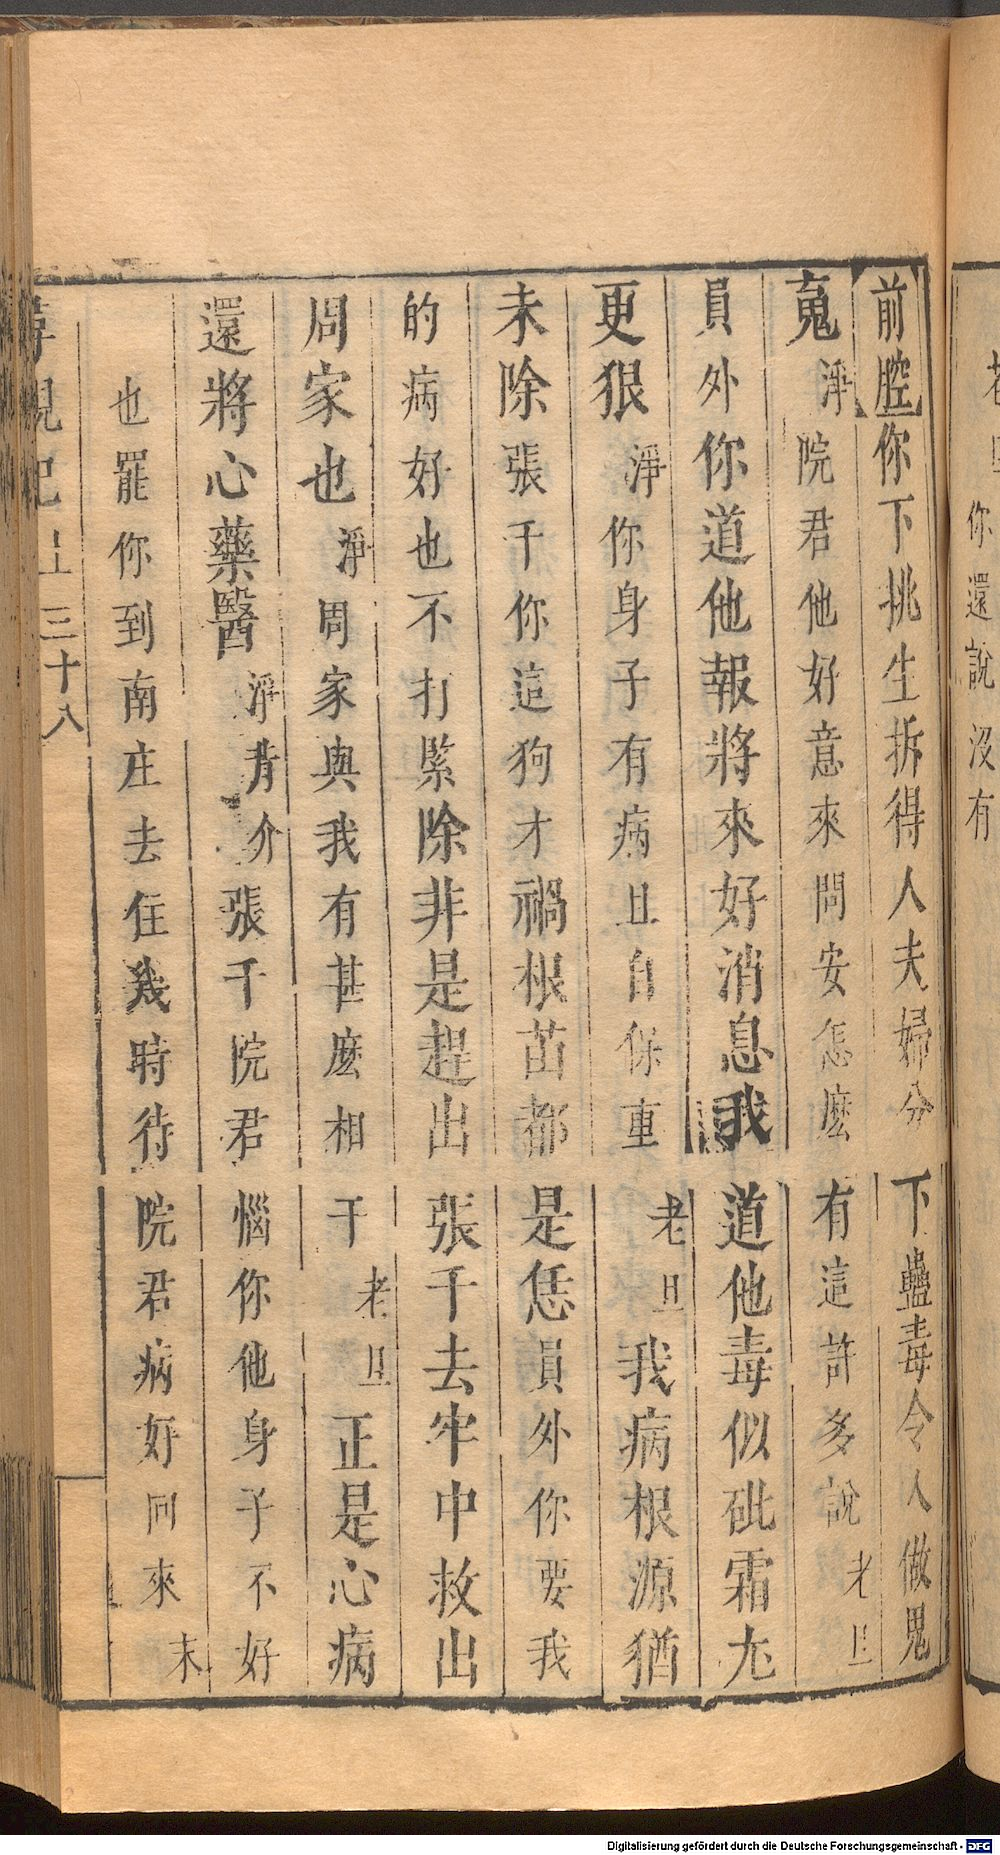 你還說沒有
前腔你下挑生拆得人夫婦分下蠱毒令人做鬼
䰟淨院君他好意來問安怎麽有這許多說老旦
員外你道他報將來好消息我道他毒似砒霜尢
更狠淨你身子有病且自保重老旦我病根源猶
未除張千你這狗才禍根苗都是恁員外你要我
的病好也不打緊除非是趕出張千去牢中救出
周家也淨周家與我有甚麽相干老旦正是心病
還將心藥醫淨背介張千院君惱你他身子不好
也罷你到南庄去住幾時待院君病好回來末
尋親記上 三十八
Digitalisierung gefördert durch die Deutsche Forschungsgemeinschaft - DFG